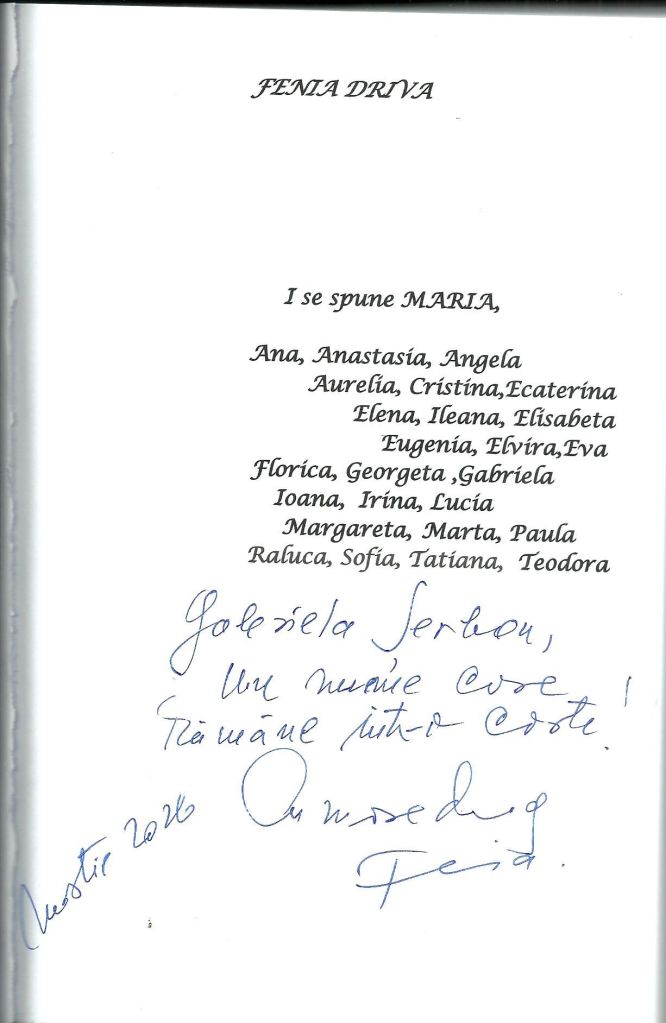 FENIA DRIVA
I se spune MARIA,
Ana, Anastasia, Angela
Aurelia, Cristina,Ecaterina
Elena, Ileana, Elisabeta
Eugenia, Elvira,Eva
Florica, Georgeta ,Gabriela
Ioana, Irina, Lucia
Margareta, Marta, Paula
Raluca, Sofia, Tatiana, Teodora
Gabriela Serban,
Un nume care
rămâne într-o carte!
Cu mare drag
Fenia.